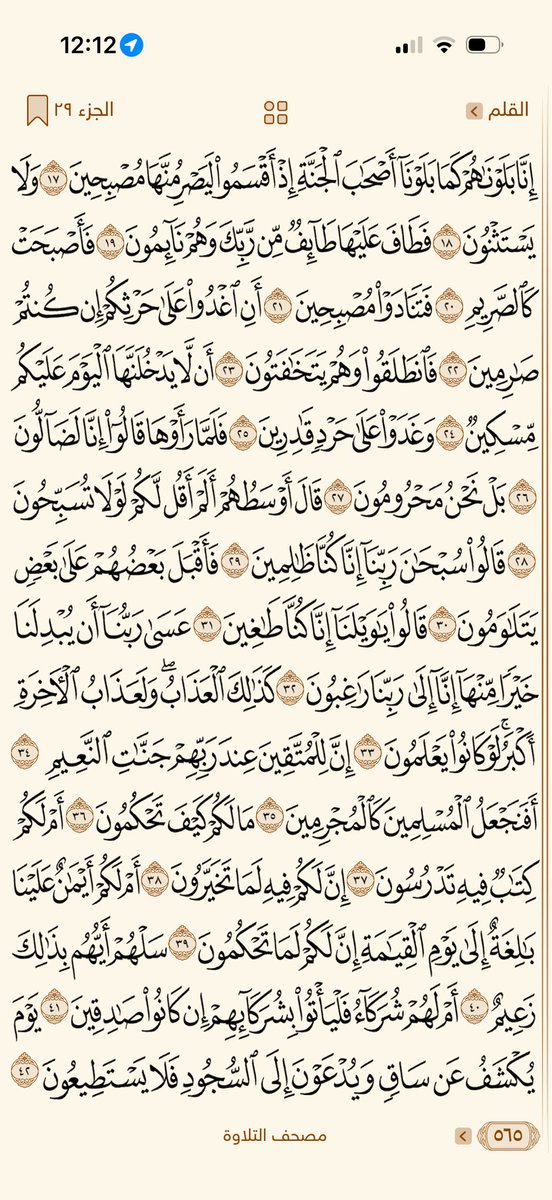 12:12
القلم
الجزء ٢٩
إِنَّا بَلَوْنَٰهُمْ كَمَا بَلَوْنَآ أَصْحَٰبَ ٱلْجَنَّةِ إِذْ أَقْسَمُوا۟ لَيَصْرِمُنَّهَا مُصْبِحِينَ ١٧ وَلَا
يَسْتَثْنُونَ ١٨ فَطَافَ عَلَيْهَا طَآئِفٌ مِّن رَّبِّكَ وَهُمْ نَآئِمُونَ ١٩ فَأَصْبَحَتْ
كَٱلصَّرِيمِ ٢٠ فَتَنَادَوْا۟ مُصْبِحِينَ ٢١ أَنِ ٱغْدُوا۟ عَلَىٰ حَرْثِكُمْ إِن كُنتُمْ
صَٰرِمِينَ ٢٢ فَٱنطَلَقُوا۟ وَهُمْ يَتَخَٰفَتُونَ ٢٣ أَن لَّا يَدْخُلَنَّهَا ٱلْيَوْمَ عَلَيْكُم
مِّسْكِينٌ ٢٤ وَغَدَوْا۟ عَلَىٰ حَرْدٍ قَٰدِرِينَ ٢٥ فَلَمَّا رَأَوْهَا قَالُوٓا۟ إِنَّا لَضَآلُّونَ
٢٦ بَلْ نَحْنُ مَحْرُومُونَ ٢٧ قَالَ أَوْسَطُهُمْ أَلَمْ أَقُل لَّكُمْ لَوْلَا تُسَبِّحُونَ
٢٨ قَالُوا۟ سُبْحَٰنَ رَبِّنَآ إِنَّا كُنَّا ظَٰلِمِينَ ٢٩ فَأَقْبَلَ بَعْضُهُمْ عَلَىٰ بَعْضٍ
يَتَلَٰوَمُونَ ٣٠ قَالُوا۟ يَٰوَيْلَنَآ إِنَّا كُنَّا طَٰغِينَ ٣١ عَسَىٰ رَبُّنَآ أَن يُبْدِلَنَا
خَيْرًا مِّنْهَآ إِنَّآ إِلَىٰ رَبِّنَا رَٰغِبُونَ ٣٢ كَذَٰلِكَ ٱلْعَذَابُ ۖ وَلَعَذَابُ ٱلْءَاخِرَةِ
أَكْبَرُ ۚ لَوْ كَانُوا۟ يَعْلَمُونَ ٣٣ إِنَّ لِلْمُتَّقِينَ عِندَ رَبِّهِمْ جَنَّٰتِ ٱلنَّعِيمِ ٣٤
أَفَنَجْعَلُ ٱلْمُسْلِمِينَ كَٱلْمُجْرِمِينَ ٣٥ مَا لَكُمْ كَيْفَ تَحْكُمُونَ ٣٦ أَمْ لَكُمْ
كِتَٰبٌ فِيهِ تَدْرُسُونَ ٣٧ إِنَّ لَكُمْ فِيهِ لَمَا تَخَيَّرُونَ ٣٨ أَمْ لَكُمْ أَيْمَٰنٌ عَلَيْنَا
بَٰلِغَةٌ إِلَىٰ يَوْمِ ٱلْقِيَٰمَةِ إِنَّ لَكُمْ لَمَا تَحْكُمُونَ ٣٩ سَلْهُمْ أَيُّهُم بِذَٰلِكَ
زَعِيمٌ ٤٠ أَمْ لَهُمْ شُرَكَآءُ فَلْيَأْتُوا۟ بِشُرَكَآئِهِمْ إِن كَانُوا۟ صَٰدِقِينَ ٤١ يَوْمَ
يُكْشَفُ عَن سَاقٍ وَيُدْعَوْنَ إِلَى ٱلسُّجُودِ فَلَا يَسْتَطِيعُونَ ٤٢
٥٦٥
مصحف التلاوة